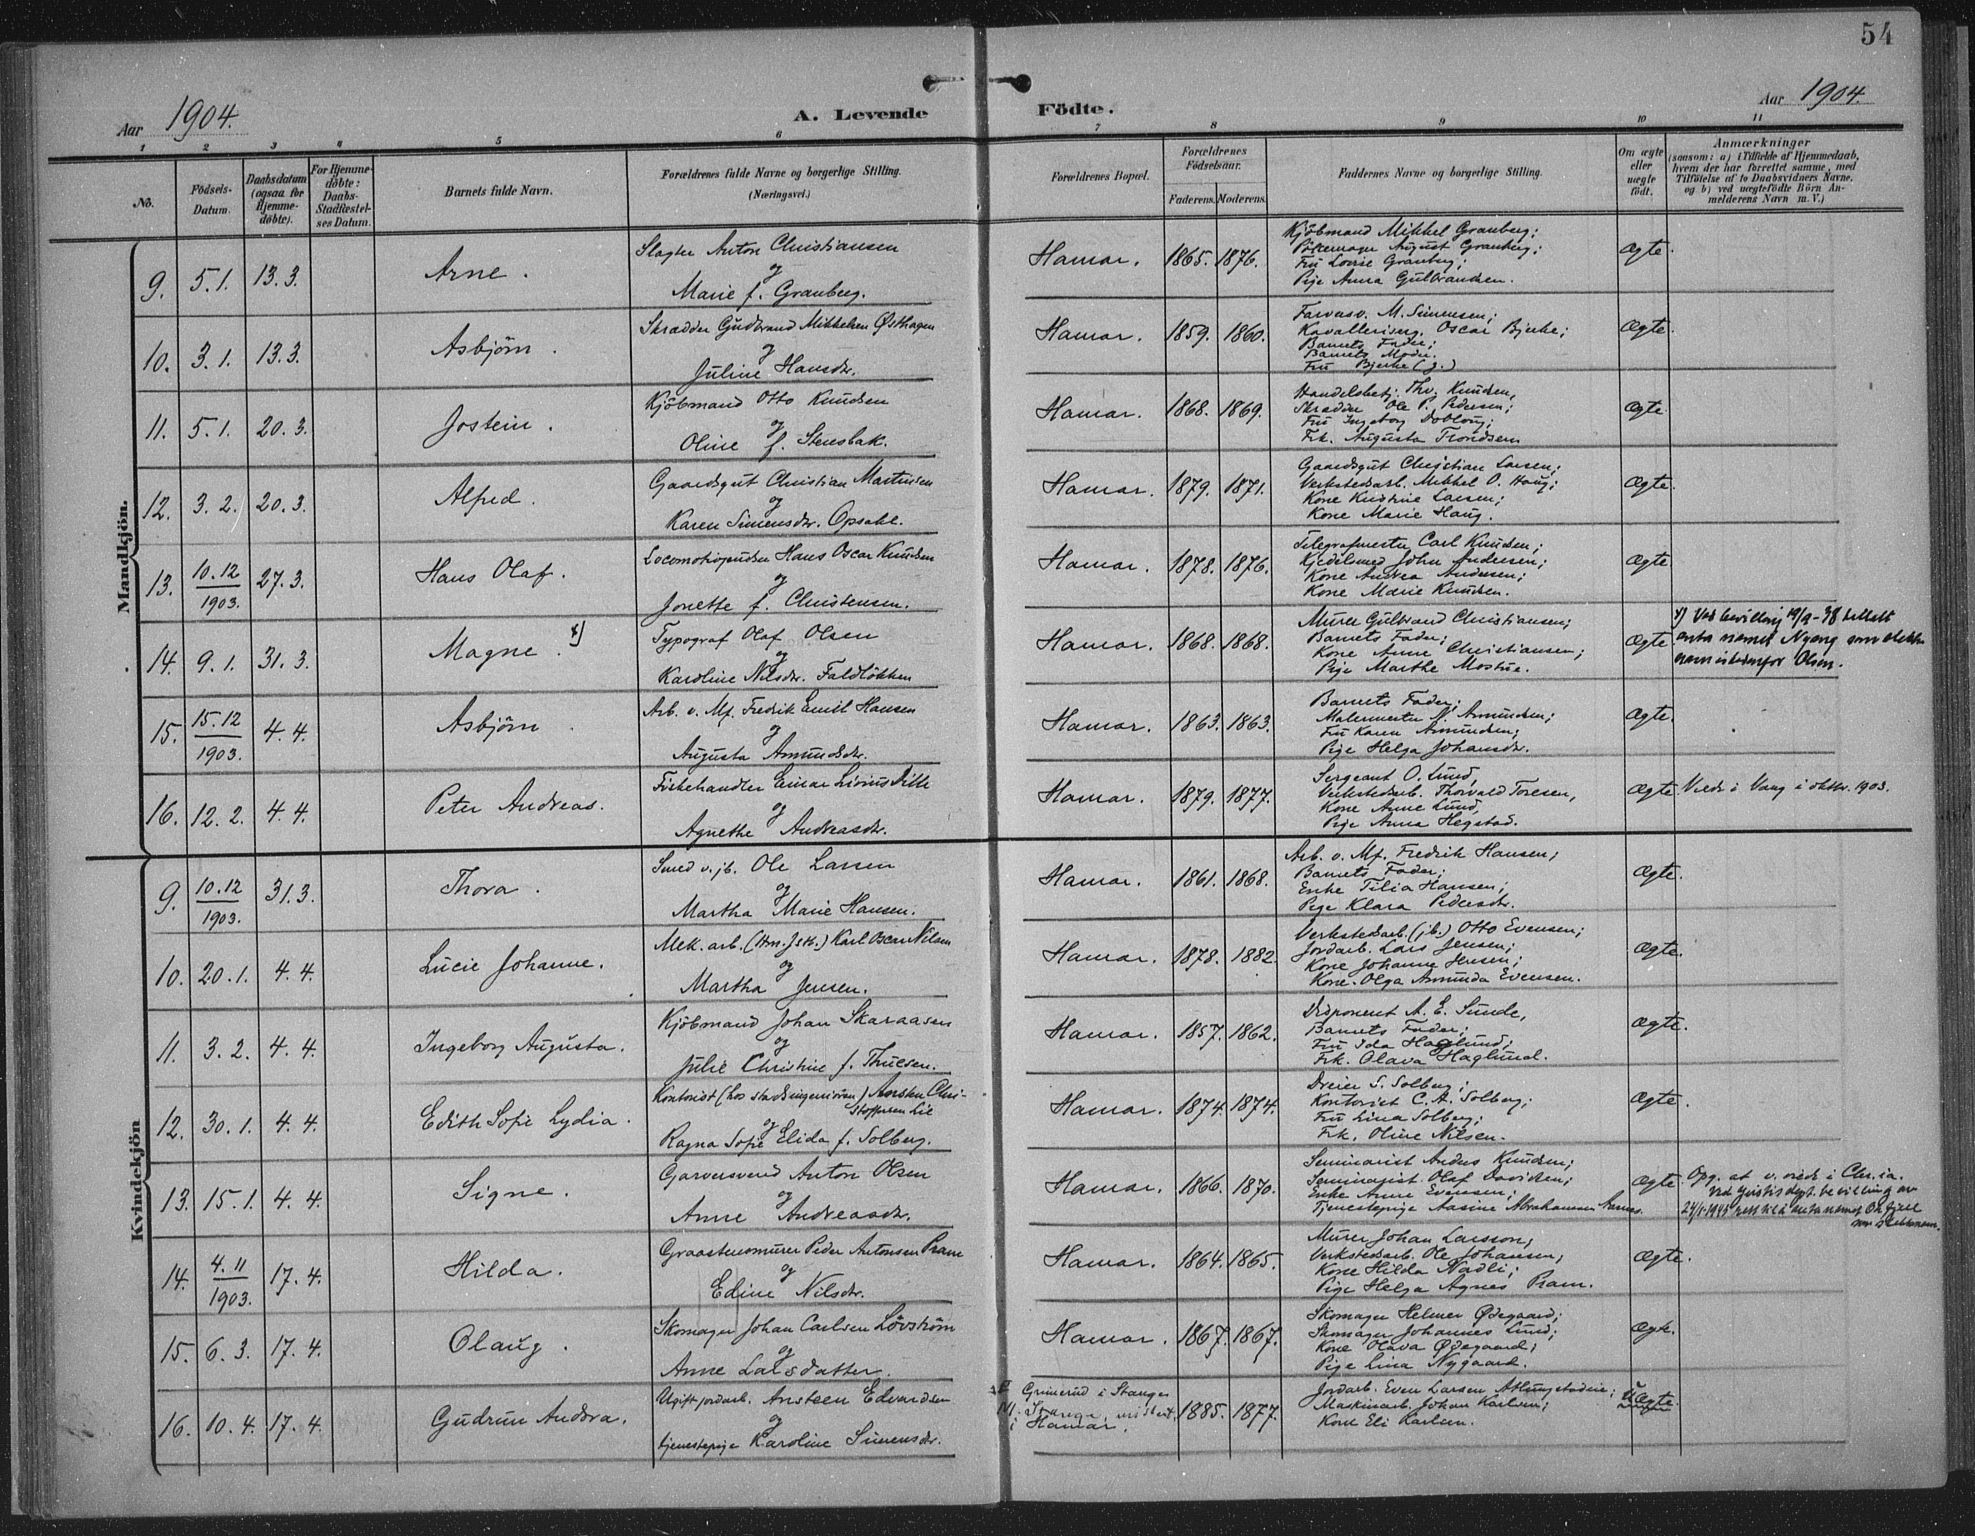 54
Aar 1904.
A. Levende Födte.
Aar 1904.
1 2 3 4 5 6 7 8 9 10 11
No.
Födsels-Datum.
Daabsdatum (ogsaa for Hjemme-döbte).
For Hjemme-döbte: Daabs-Stadfæstel-ses Datum.
Barnets fulde Navn.
Forældrenes fulde Navne og borgerlige Stilling. (Næringsvei.)
Forældrenes Bopæl.
Forældrenes Födselsaar.
Faderens. Moderens.
Faddernes Navne og borgerlige Stilling.
Om ægte eller uægte födt.
Anmærkninger
(saasom: a) i Tilfælde af Hjemmedaab, hvem der har forrettet samme, med Tilföielse af to Daabsvidners Navne, og b) ved uægtefödte Börn An-melderens Navn m. V.)
Mandkjön.
9. 5.1. 13.3. Arne.
Slagter Anton Christiansen
og
Marie f. Granberg.
Hamar. 1865. 1876.
Kjöbmand Mikkel Granberg;
August Granberg;
Fru Lovise Granberg;
Pige Anna Gulbrandsen.
Ægte.
10. 3.1. 13.3. Asbjörn.
Skrædder Gudbrand Mikkelsen Østhagen
og
Juline Hansdr.
Hamar. 1859. 1860.
Farvesv. M. Simensen;
Kavalleriserg. Oscar Bjerke;
Barnets Fader;
Barnets Moder.
Fru Bjerke (j.)
Ægte.
11. 5.1. 20.3. Jostein.
Kjöbmand Otto Knudsen
og
Oline f. Stensbak.
Hamar. 1868. 1869.
Handelsbetj. Thv. Knudsen,
Skrædder Ole P. Pedersen;
Fru Ingeborg Dobloug;
Frk. Augusta Trondsen
Ægte.
12. 3.2. 20.3. Alfred.
Gaardsgut Christian Martinsen
og
Karen Simensdr. Opsahl.
Hamar. 1879. 1871.
Gaardsgut Christian Larsen;
Verkstedsarb. Mikkel O. Haug;
Kone Kristine Larsen;
Kone Marie Haug.
Ægte.
13. 10.12 1903. 27.3. Hans Olaf.
Locomotivpudser Hans Oscar Knudsen
og
Jonette f. Christensen.
Hamar. 1878. 1876.
Telegrafmester Carl Knudsen;
Kjedelsmed John Andersen;
Kone Andrea Andersen;
Kone Marie Knudsen.
Ægte
14. 9.1. 31.3. Magne. x)
Typograf Olaf Olsen
og
Karoline Nilsdr. Faldlökken
Hamar. 1868. 1868.
Murer Gulbrand Christiansen;
Barnets Fader;
Kone Anne Christiansen;
Pige Marthe Mostue.
Ægte.
x) Ved bevilling 19/9-38 tillatt
anta navnet Nyeng som slekts
navn istedenfor Olsen.
15. 15.12 1903. 4.4. Asbjörn.
Arb. v. Mf. Fredrik Emil Hansen
og
Augusta Amundsdr.
Hamar. 1863. 1863.
Barnets Fader;
Malermester A. Amundsen;
Fru Karen Amundsen;
Pige Helga Johansdr.
Ægte.
16. 12.2. 4.4. Peter Andreas.
Fiskehandler Einar Livius
og
Agnethe Andreasdr.
Hamar. 1879. 1877.
Sergeant O. Lund,
Verkstedsarb. Thorvald Toresen,
Kone Anne Lund,
Pige Anna Hegstad.
Ægte. Viede i Vang i oktbr. 1903.
Kvindekjön
9. 10.12 1903. 31.3. Thora.
Smed v. jb. Ole Larsen
og
Martha Marie Hansen.
Hamar. 1861. 1868.
Arb. v. Mf. Fredrik Hansen;
Barnets Fader;
Enke Tilia Hansen;
Pige Klara Pedersdr.
Ægte.
10. 20.1. 4.4. Lucie Johanne.
Mek. arb. (Hm. Jst.) Karl Oscar Nilsen
og
Martha Jensen.
Hamar. 1878. 1882.
Verkstedsarb. (jb.) Otto Evensen;
Jordarb. Lars Jensen;
Kone Johanne Jensen;
Kone Olga Amunda Evensen.
Ægte.
11. 3.2. 4.4. Ingeborg Augusta.
Kjöbmand Johan Skaraasen
og
Julie Christine f. Thuesen.
Hamar. 1857. 1862.
Disponent A. E. Sunde,
Barnets Fader;
Fru Ida Haglund;
Frk. Olava Haglund.
Ægte.
12. 30.1. 4.4. Edith Sofie Lydia.
Kontorist (hos stadsingeniören) Karsten Chri-
stoffersen Lie
og
Ragna Sofie Elida f. Solberg.
Hamar. 1874. 1874.
Dreier S. Solberg;
Kontorist C. A. Solberg;
Fru Lina Solberg;
Frk. Oline Nilsen.
Ægte.
13. 15.1. 4.4. Signe.
Garversvend Anton Olsen
og
Anne Andreasdr.
Hamar. 1866. 1870.
Seminarist Anders Knudsen;
Seminarist Olaf Davidsen;
Enke Anne Evensen;
Tjenestepige Aasine Abrahamsen
Ægte. Opg. at v. viede i Chr.ia.
Ved justisdept. bevilling av
rett til å anta navnet
som slektsnavn.
14. 4.11 1903. 17.4. Hilda.
Graastensmurer Peder Antonsen Pram
og
Edine Nilsdr.
Hamar. 1864. 1865.
Murer Johan Larsson;
Verkstedsarb. Ole Johansen;
Kone Hilda Nadli;
Pige Helga Agnes Pram.
Ægte.
15. 6.3. 17.4. Olaug.
Skomager Johan Carlsen Lövström
og
Anne Larsdatter.
Hamar. 1867. 1867.
Skomager Helmer Ødegaard;
Skomager Johannes Lund;
Kone Olava Ødegaard;
Pige Lina Nygaard.
Ægte.
16. 10.4. 17.4. Gudrun Andrea.
Ugift jordarb. Ansteen Edvardsen
og
tjenestepige Karoline Simensdr.
F Grinerud i Stange
M. Stange,
i Hamar.
1885. 1877.
Jordarb. Even Larsen
Maskinarb. Johan Karlsen;
Kone Eli Karlsen.
UÆgte.